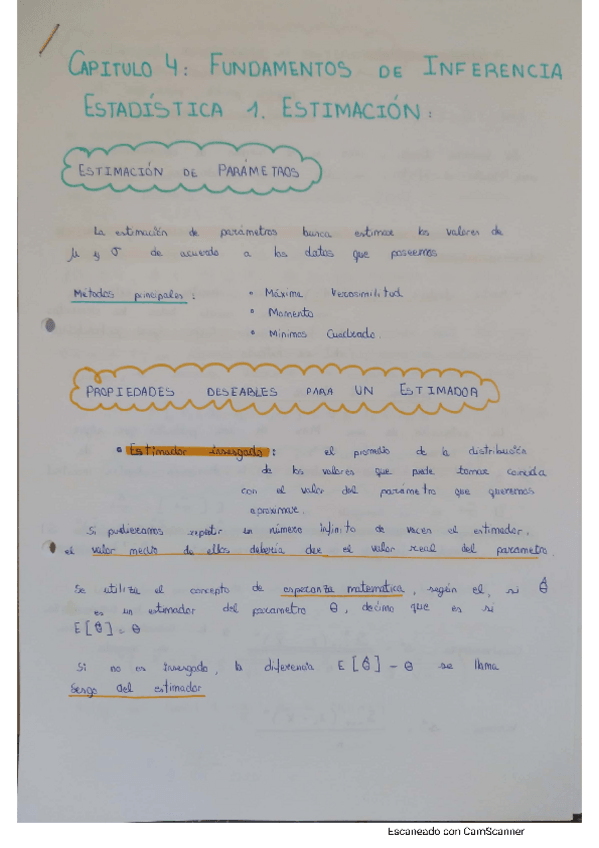 CAPITULO 4: FUNDAMENTOS DE INFERENCIA
ESTADÍSTICA 1. ESTIMACIÓN:
ESTIMACIÓN DE PARÁMETROS
La estimación de parámetros busca estimar los valores de
μ y σ de acuerdo a los datos que poseemos
Métodos principales: • Máxima Verosimilitud
• Momento
• Mínimos Cuadrado.
PROPIEDADES DESEABLES PARA UN ESTIMADOR
• Estimador insesgado: el promedio de la distribución
de los valores que puede tomar coincida
con el valor del parámetro que queremos
aproximar.
Si pudieramos repetir un número infinito de veces el estimador,
el valor medio de ellos debería dar el valor real del parametro.
Se utiliza el concepto de esperanza matematica, según el, si θ̂
es un estimador del parametro θ, decimo que es si
E[θ̂] = θ
Si no es insesgado, la diferencia E[θ̂] - θ se llama
Sesgo del estimador
Escaneado con CamScanner